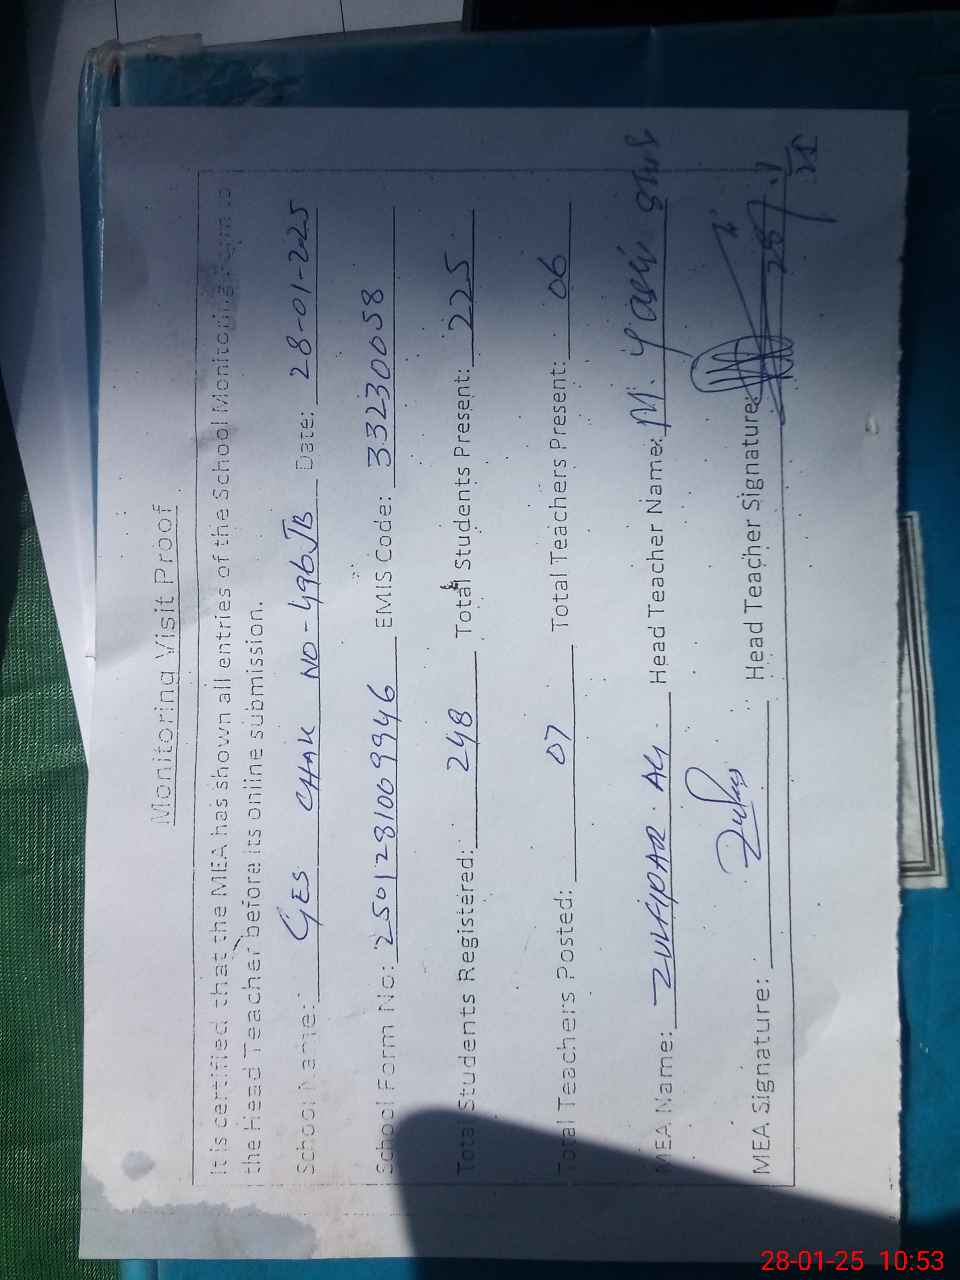 Monitoring Visit Proof
It is certified that the MEA has shown all entries of the School Monitoring Form to
the Head Teacher before its online submission.
School Name: GES CHAK NO-496JB Date: 28-01-225
School Form No: 2501281009946 EMIS Code: 33230058
Total Students Registered: 248 Total Students Present: 225
Total Teachers Posted: 07 Total Teachers Present: 06
MEA Name: ZULFIQAR ALI Head Teacher Name: M. Yasin
MEA Signature: Head Teacher Signature:
28-01-25 10:53